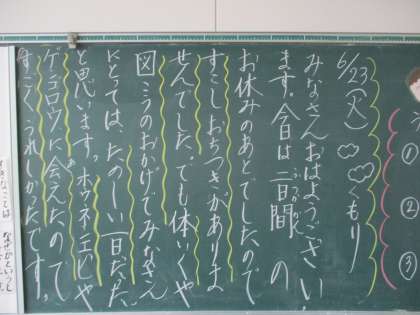 6/23(火)くもり
みなさんおはようござい
ます。今日は二日間の
お休みのあとでしたので
すこしおちつきがありま
せんでした。でも体いくや
図こうのおかげでみなさん
にとっては、たのしい一日だった
と思います。ホウネンエビや
ゲンゴロウに会えたので
すごくうれしかったです。
①
②
③